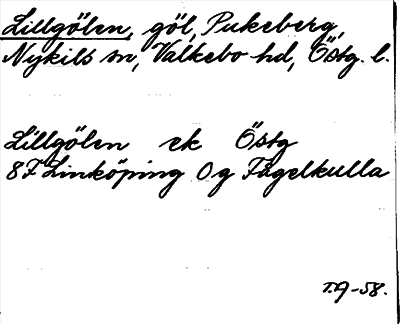 Lillgölen, göl, Pukeberg,
Nykils sn, Valkebo hd, Östg. l.
Lillgölen ek Östg
8F Linköping 0g Fågelkulla
T.A-58.